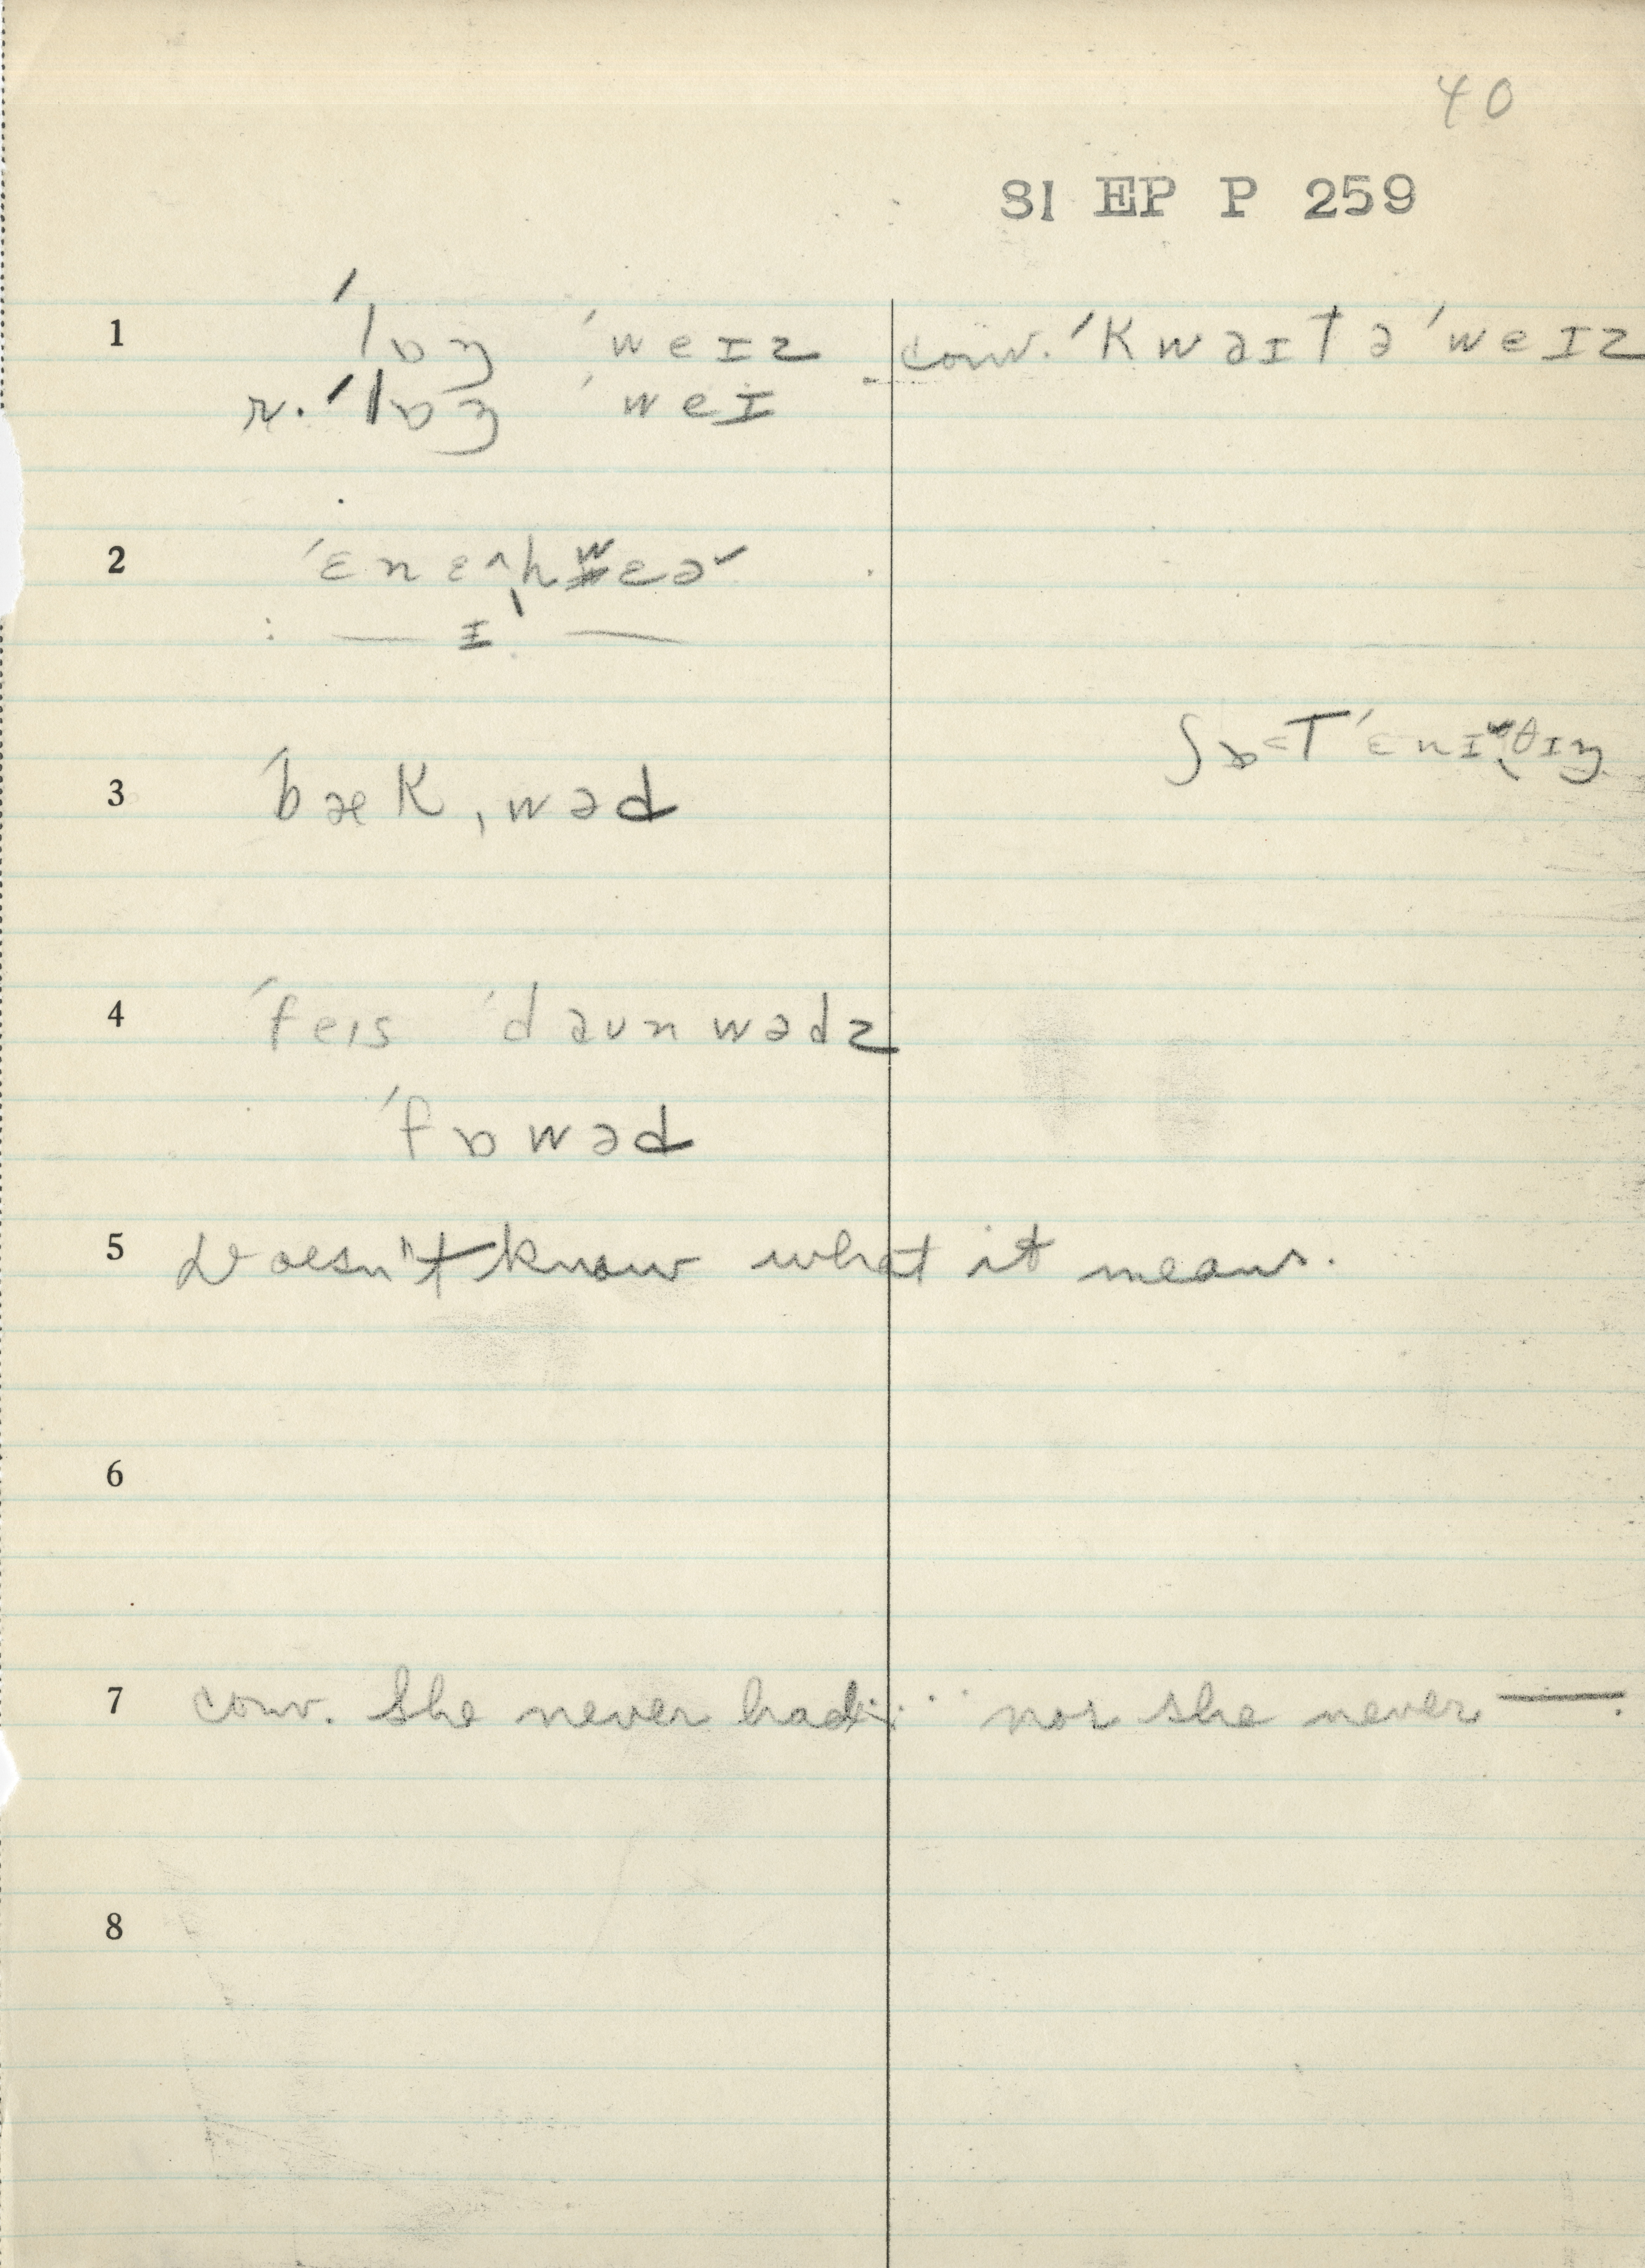 40
SI EP P 259
1 ˈlɒŋ ˈweɪz conv. ˈkwaɪt ə ˈweɪz
r. ˈlɒŋ ˈweɪ
2 ˈɛnɛ^ˌhwɛə˞
: — ɪ —
ʃɒ˂t ˈɛnɪˌθɪŋ
3 ˈbæk,wəd
4 ˈfeɪs ˈdaʊnwədz
ˈfɒwəd
5 Doesn't know what it means.
6
7 conv. She never had .... nor she never —.
8